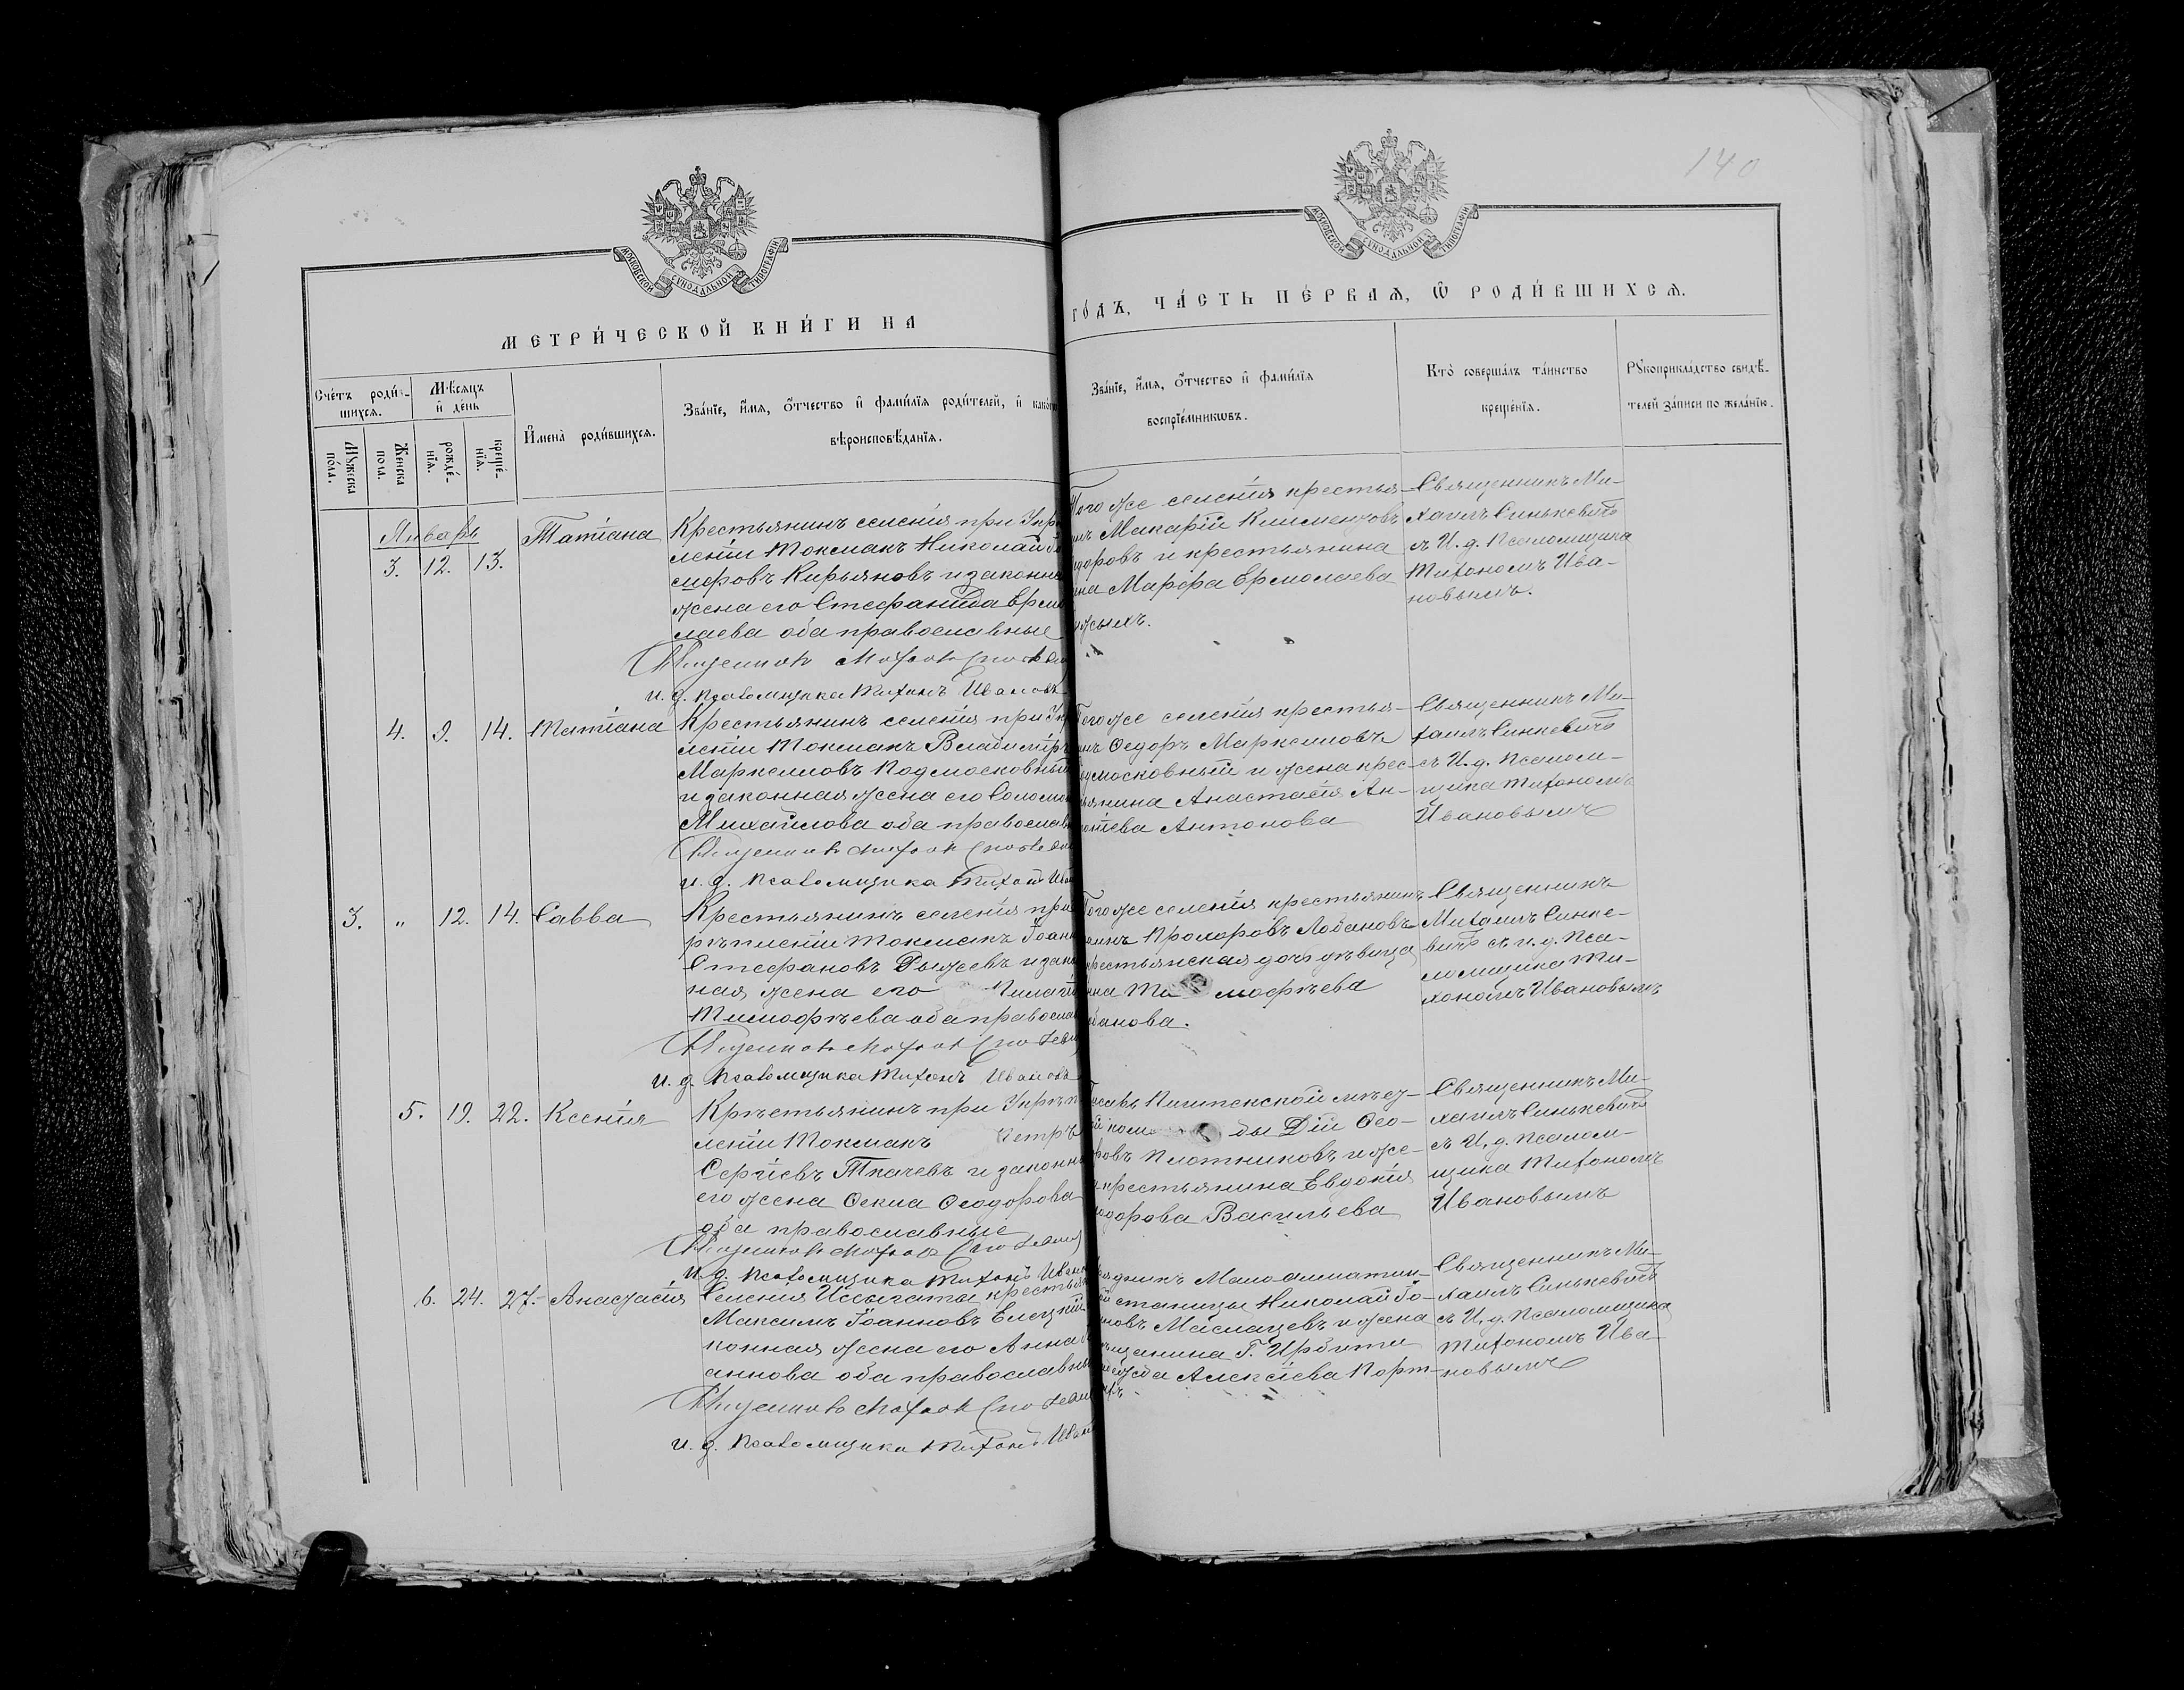 140
МОСКОВСКОЙ СѴНОДАЛЬНОЙ ТИПОГРАФІИ
МОСКОВСКОЙ СѴНОДАЛЬНОЙ ТИПОГРАФІИ
МЕТРИ́ЧЕСКОЙ КНИ́ГИ НА
ГО́ДЪ, ЧА́СТЬ ПЕ́РВАѦ, Ѿ РОДИ́ВШИХСѦ.
Сче́тъ роди́вшихсѧ.
Мꙋ́жеска по́ла.
Же́нска пола.
Мѣ́сяцъ и де́нь
рожде́нїѧ.
креще́нїѧ.
Имена̀ роди́вшихсѧ.
Зва́нїе, и́мѧ, ѻ́тчество и фами́лїѧ роди́телей, и како́гѡ
вѣроисповѣ́данїѧ.
Зва́нїе, и́мѧ, ѻ́тчество и фами́лїѧ
воспрїе́мникѡвъ.
Кто̀ соверша́лъ та́инство
креще́нїѧ.
Рꙋкоприкла́дство свидѣ́-
телей за́писи по жела́нїю.
Январь
3. 12. 13.
Татіана
Крестьянинъ селенія при Укр
леніи Токмакъ Николай
сифовъ Кирьяновъ и законна
жена его Стефанида Ермо
лаева оба православные
и. д. псаломщика Тихонъ Ивановъ
Того же селенія крестья-
нъ Макарій Климентовъ
доровъ и крестьянина
на Марфа Ермолаева
Священникъ Ми-
хаилъ Синькевичъ
съ И. д. Псаломщика
Тихономъ Ива-
новымъ.
4. 9. 14. Татіана
Крестьянинъ селенія при Укр
леніи Токмакъ Владиміръ
Маркелловъ Подмосковный
и законная жена его Соломон
Михайлова оба православн
и. д. псаломщика Тихонъ Иван
Того же селенія крестья-
нъ Ѳедоръ Маркелловъ
дмосковный и жена крес-
янина Анастасія Ан-
Антонова
Священникъ Ми-
хаилъ Синкевичъ
съ И. д. Псалом-
щика Тихономъ
Ивановымъ
3. „ 12. 14. Савва
Крестьянинъ селенія при
рѣпленіи Токмакъ Іоанн
Стефановъ Рыжевъ и закон
ная жена его Пилагія
Тимофѣева оба правосла
и. д. псаломщика Тихонъ Ивановъ
Того же селенія крестьянинъ
Прохоровъ Лобановъ
рестьянская дочь дѣвица
на Ти мофѣева
банова.
Священникъ
Михаилъ Синке-
вичъ съ и. д. Пса-
ломщика Ти-
хономъ Ивановымъ
5. 19. 22. Ксенія
Крѣстьянинъ при Укрѣп
леніи Токмакъ Петръ
Сергіевъ Ткачевъ и законна
его жена Ѳекла Ѳеодорова
оба православные
и. д. псаломщика Тихонъ Ивано
Пишпекской мѣст-
ды Дій Ѳео-
ровъ Плотниковъ и же-
крестьянина Евдокія
одорова Васильева
Священникъ Ми-
хаилъ Синькевичъ
съ И. д. Псалом-
щика Тихономъ
Ивановымъ
6. 24. 27. Анастасія
Селенія Иссыгаты крестьян
Максимъ Іоанновъ Елецкій
конная жена его Анна
аннова оба православны
и. д. псаломщика Тихонъ Иван
Мало-алматин-
й станицы Николай Іо-
новъ Маслацевъ и жена
щанина Г. Ирбита
Алексіева Корт-
Священникъ Ми-
хаилъ Синькевичъ
съ И. д. Псаломщика
Тихономъ Ива-
новымъ